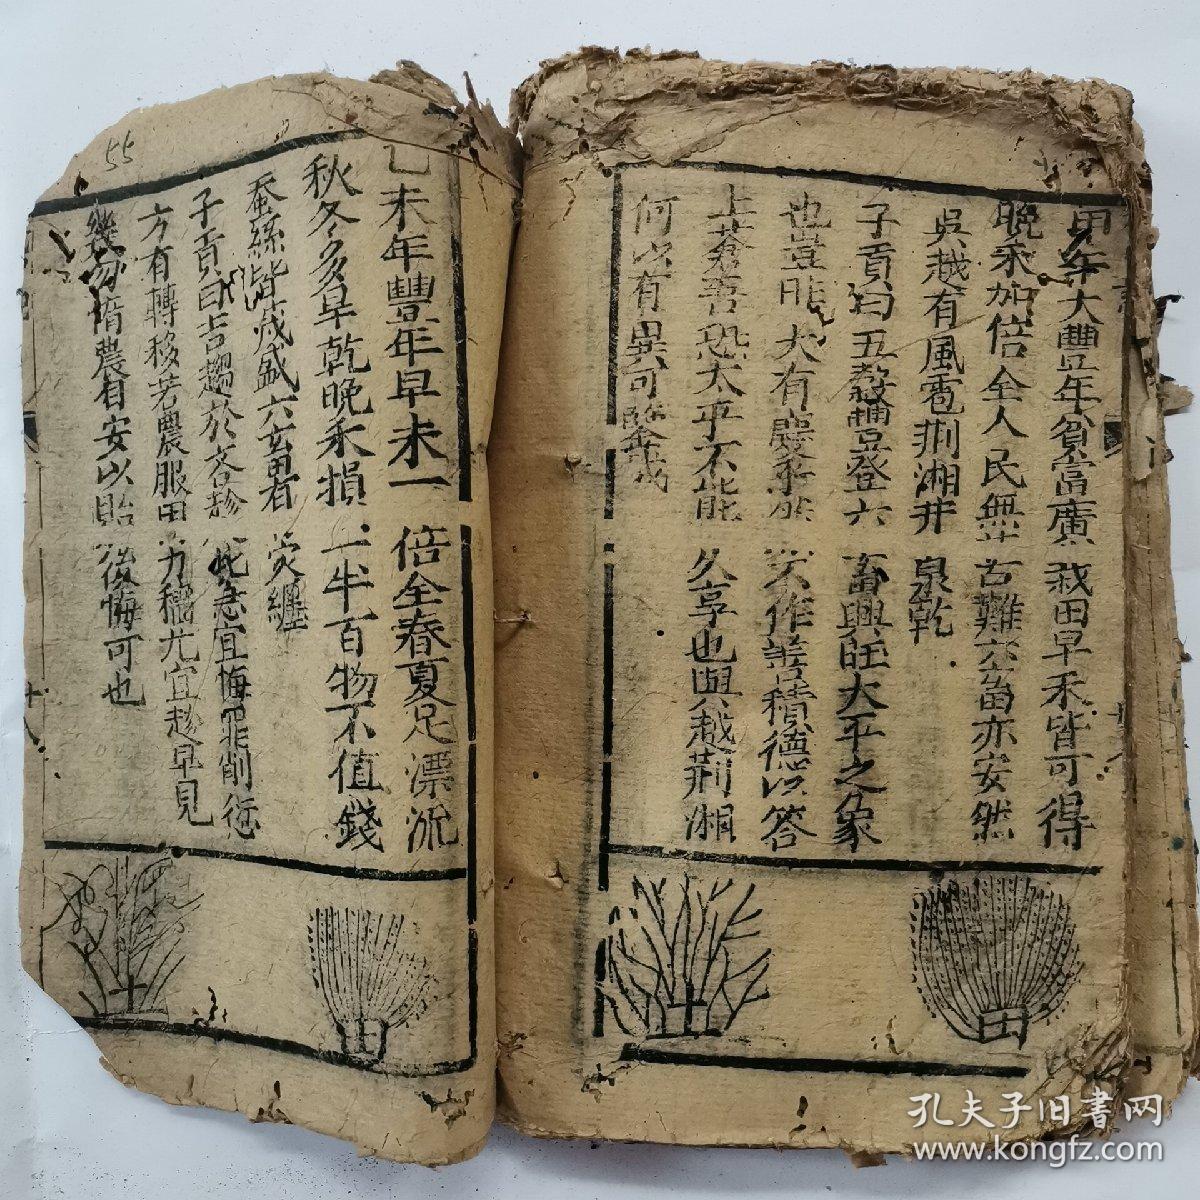 甲午大豐年貧富廣栽田早禾皆可得
晚禾加倍全人民無苦難六畜亦安然
吳越有風雹荆湘井泉乾
子貢曰五穀豐登六畜興旺太平之象
也豈非大有慶 作善積德以答
上蒼善恐太平不能久享也與越荆湘
何以有異可鑒哉
乙未年豐年早未一倍全春夏足漂流
秋冬多旱乾晚禾損一半百物不值錢
蚕絲皆茂盛六畜有災纏
子貢曰吉趨於 此急宜悔罪削愆
方有轉移若農服田力穡尤宜趁早見
幾勿惰農自安以貽後悔可也
55
田
田
十八
孔夫子旧書网
www.kongfz.com